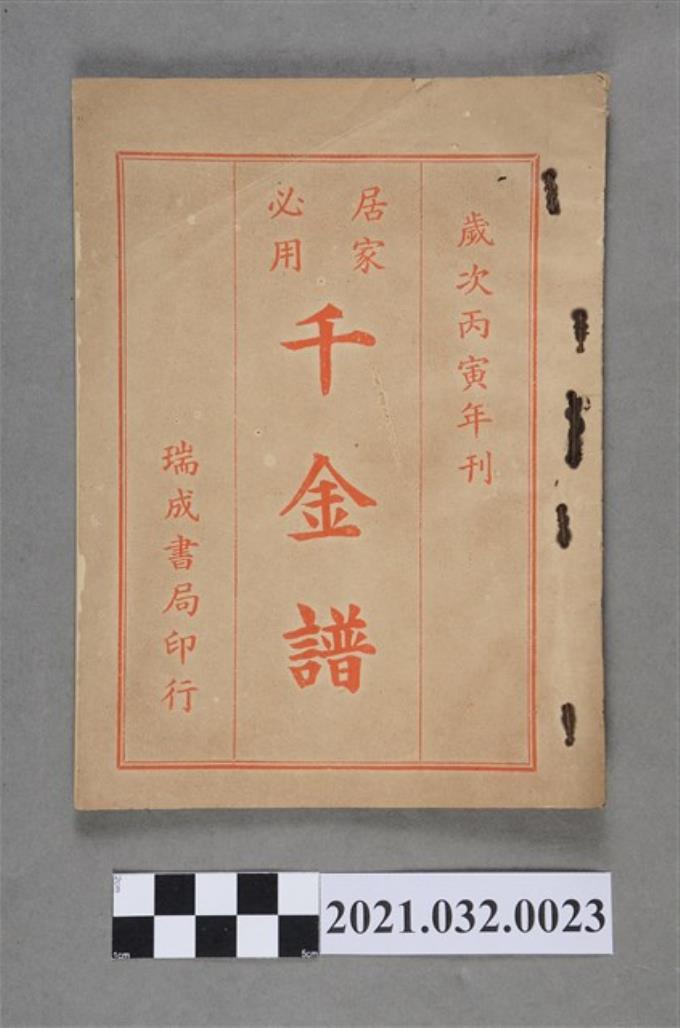 歲次丙寅年刊
居家
必用
千金譜
瑞成書局印行
2021.032.0023
1cm
5cm